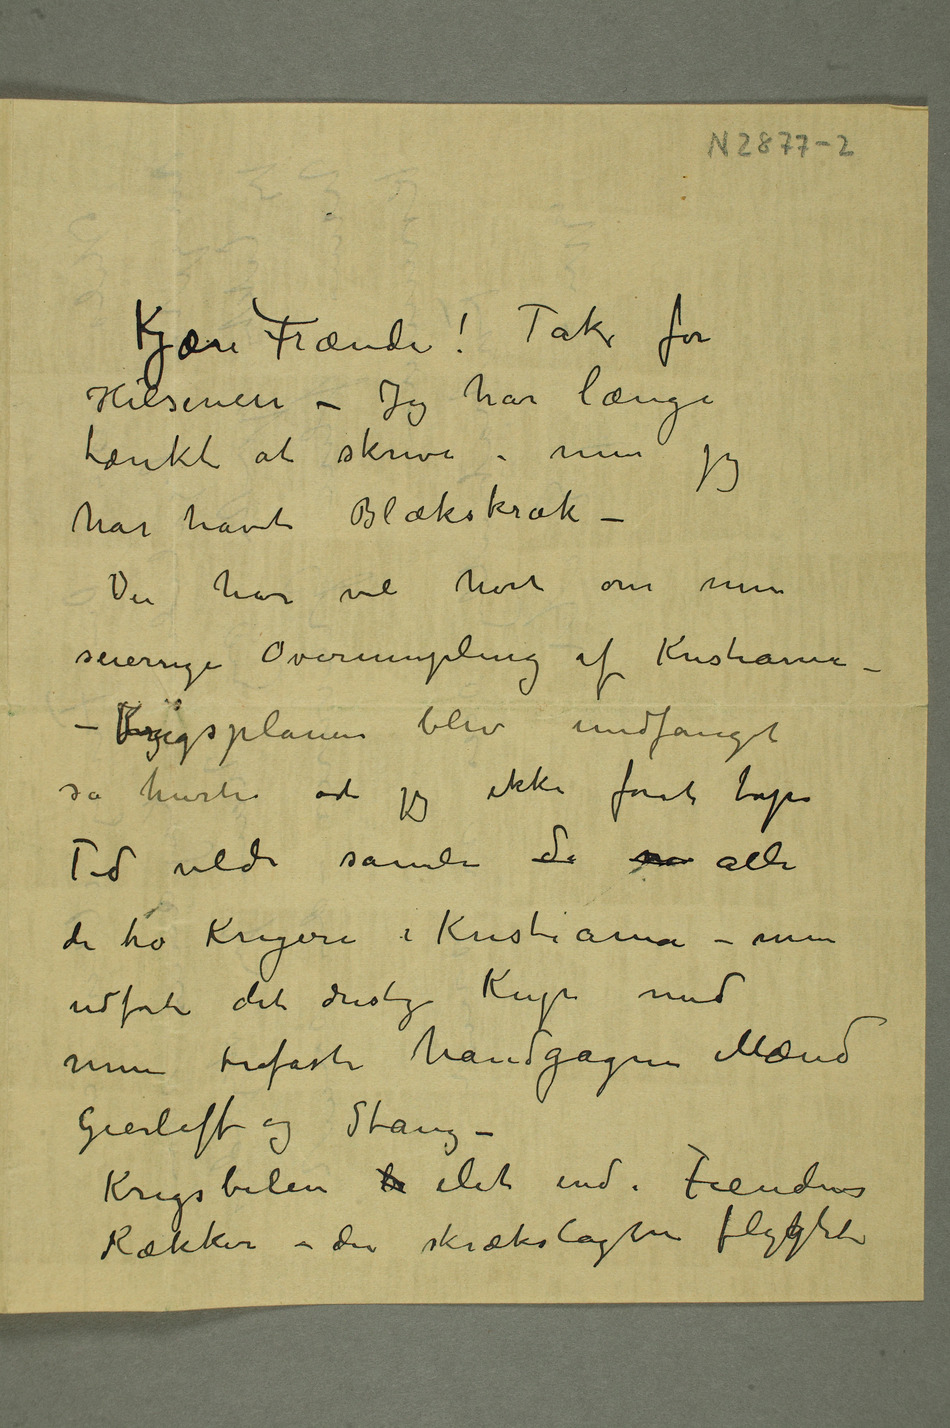 N 2877-2
Kjære Frænde! Tak for
Hilsenen – Jeg har længe
tænkt at skrive – men jeg
har havt Blækskræk –
Du har vel hørt om min
seierrige Overrumpling af Kristiania –
– Krigsplanen blev undfanget
så hurtig at jeg ikke først tape
Tid vilde samle da alle
de tro Krigere i Kristiania – men
udførte det dristige Kup med
mine trofaste håndgagne Mænd
Gierløff og Stang –
Krigsbilen ilet ind i Fiendens
Rækker – der skrækslagne flygtet